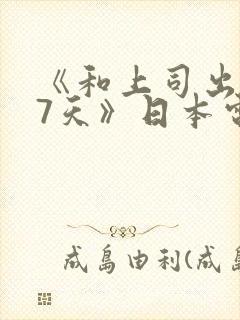 《和上司出
7天》日本
成島由利(成島